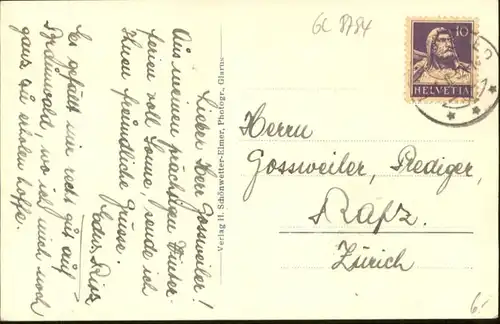 Lieber Herr Gossweiler!
Aus meinen prächtigen Winter-
ferien voll Sonne, sende ich
Ihnen freundliche Grüsse.
Es gefällt mir recht gut auf
Braunwald, wo ich mich noch
ganz zu erholen hoffe.
Verlag H. Schönwetter-Elmer, Photogr., Glarus
GL 8784
10
HELVETIA
Herrn
Gossweiler, Prediger,
Rafz.
Zürich
6.-